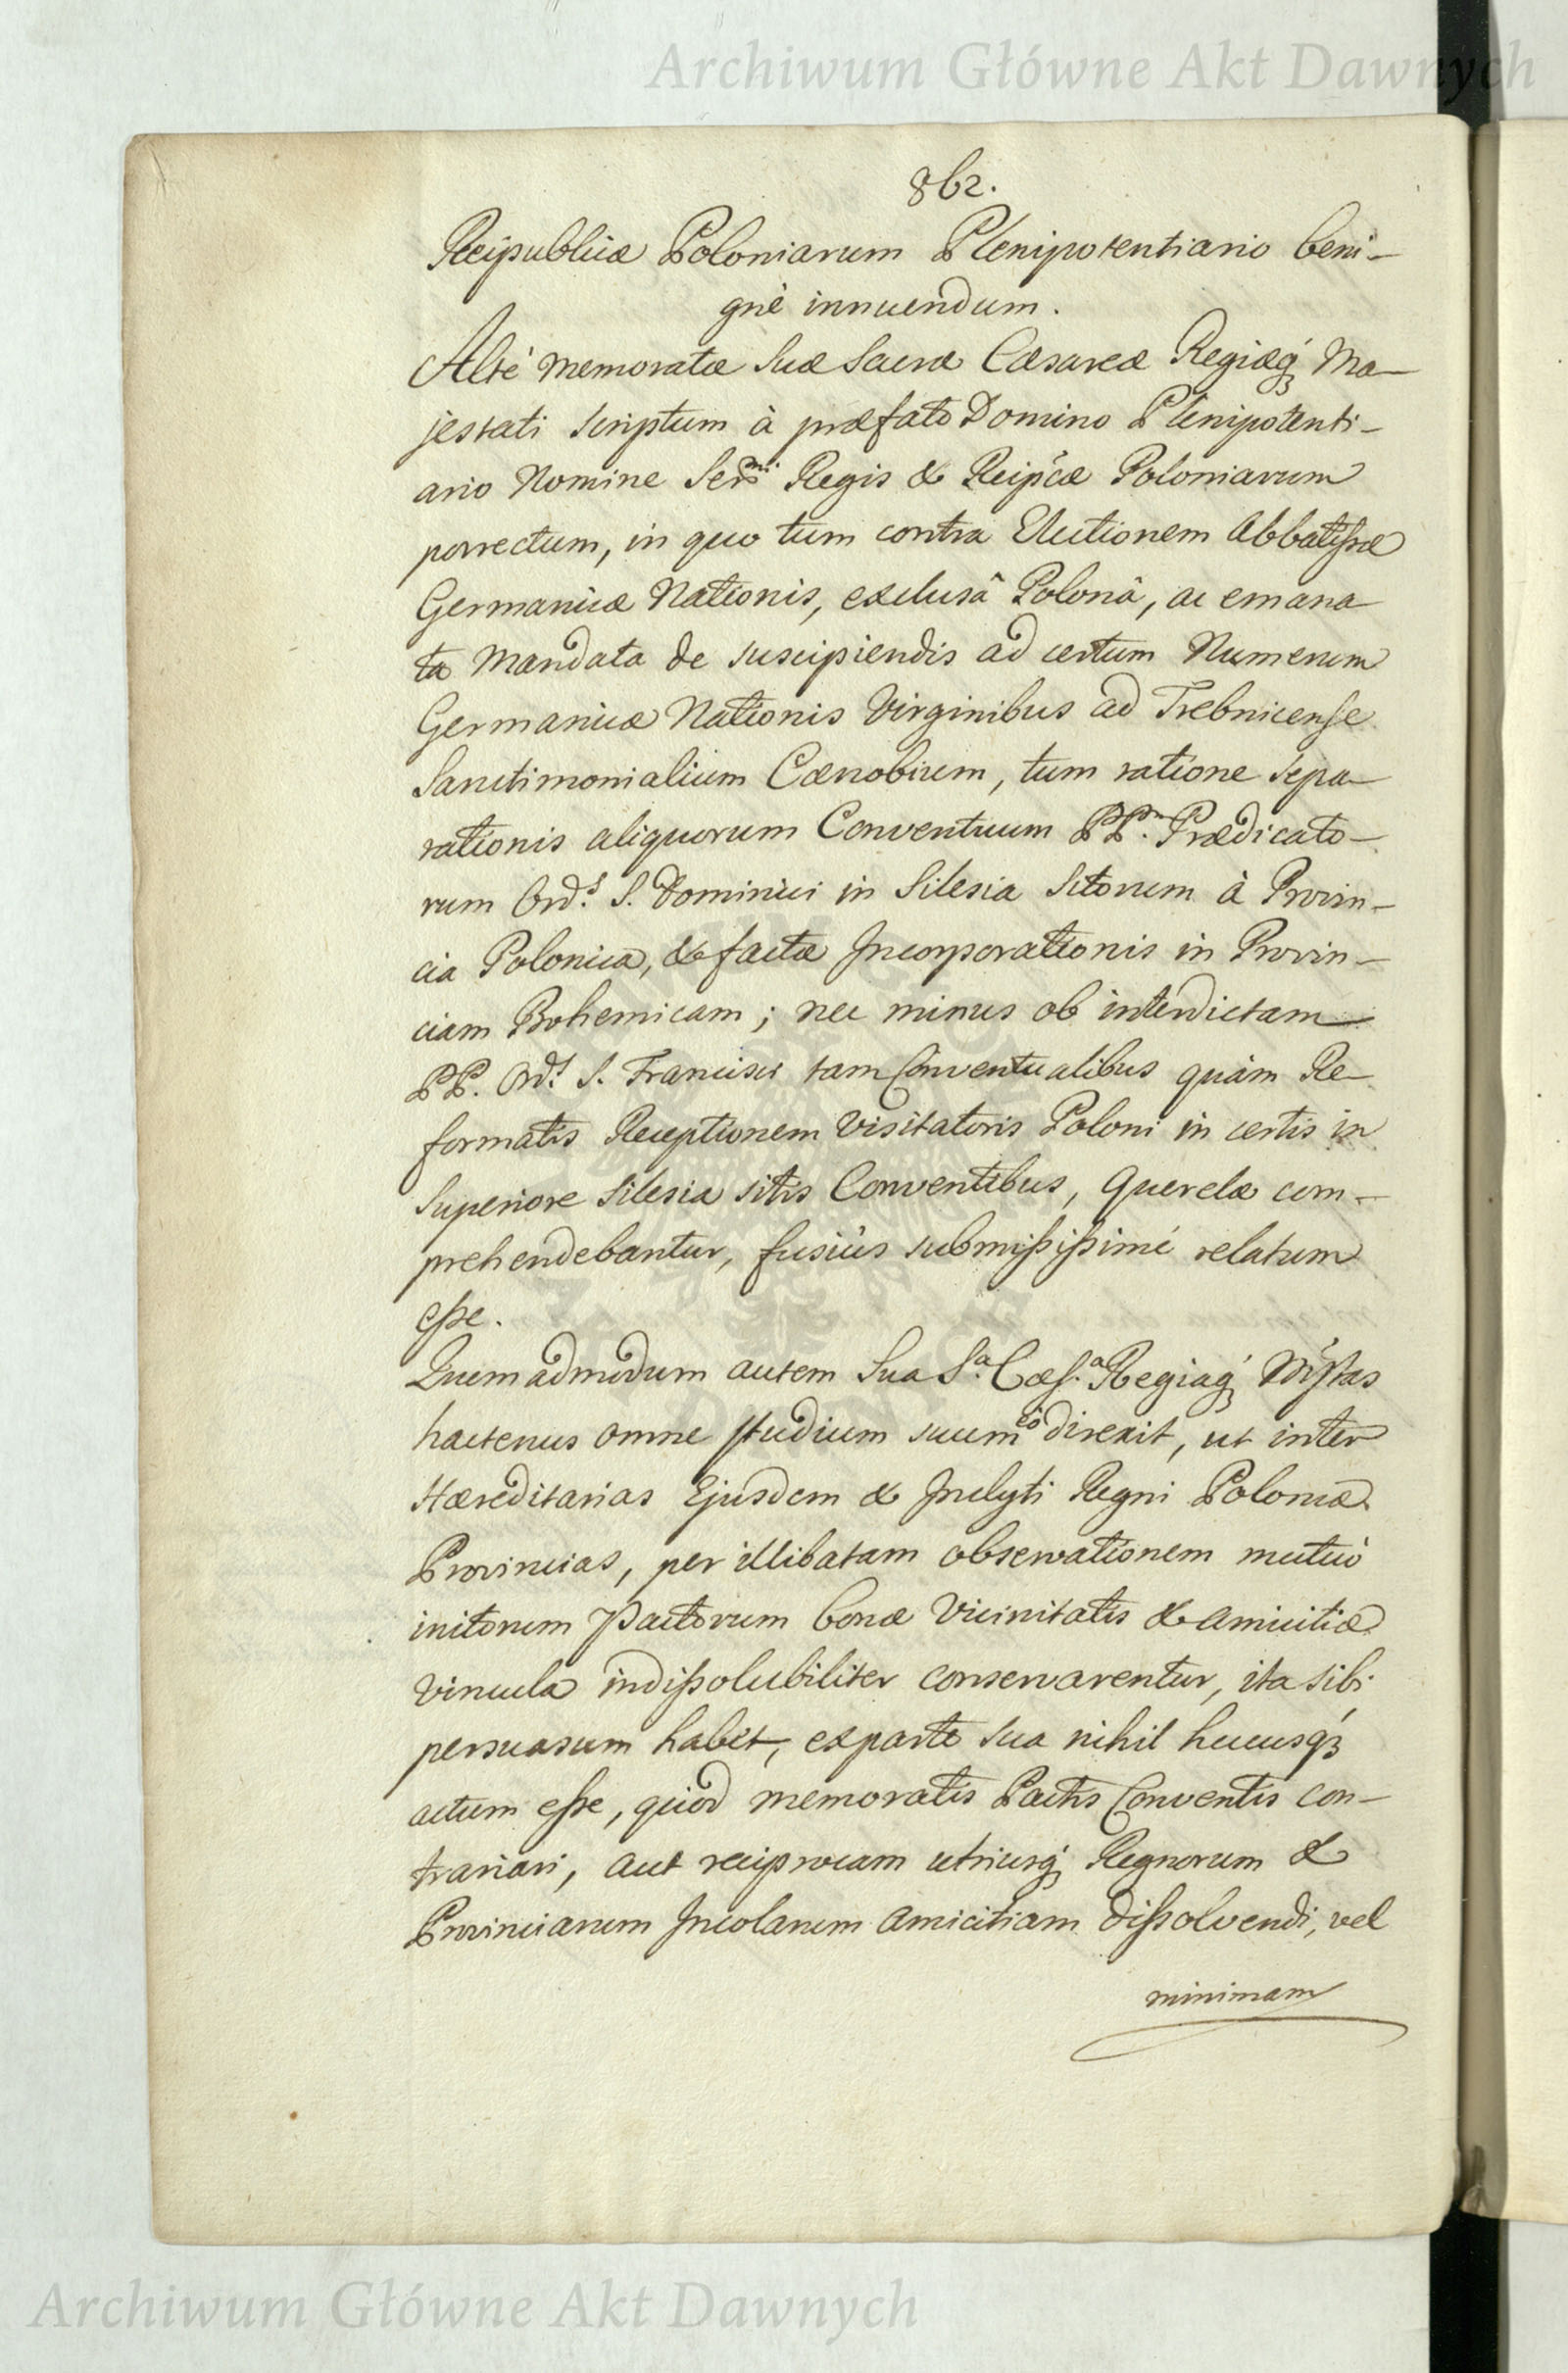 Archiwum Główne Akt Dawnych
862.
Reipublicæ Poloniarum Plenipotentiario beni-
gnè innuendum.
Altè memoratæ Suæ Sacræ Cæsareæ Regiæq́ʒ Ma-
jestati scriptum à præfato Domino Plenipotenti-
ario Nomine Serᵐⁱ Regis & Reiṕcæ Poloniarum
porrectum, in quo tum contra Electionem Abbatißæ
Germanicæ Nationis, exclusâ Polonâ, ac emana
ta Mandata de suscipiendis ad certum Numerum
Germanicæ Nationis Virginibus ad Trebnicense
Sanctimonialium Cænobium, tum ratione sepa-
rationis aliquorum Conventuum PP.ᵐ Prædicato-
rum Ord.ˢ S. Dominici in Silesia Sitorum à Provin-
cia Polonica, & factæ Incorporationis in Provin-
ciam Bohemicam; nec minus ob interdictam
PP. Ord.ˢ S. Francisci tam Conventualibus quàm Re-
formatis Receptionem Visitatoris Poloni in certis in
Superiore Silesia sitis Conventibus, Querelæ com-
prehendebantur, fusiùs submißißimè relatum
eße.
Quemadmodum autem Sua S.ᵃ Cæs.ᵃ Regiaq́ʒ Mj́stas
hactenus omne studium suum eò direxit, ut inter
Hæreditarias Ejusdem & Inclyti Regni Poloniæ
Provincias, per illibatam observationem mutuò
initorum Pactorum bonæ Vicinitatis & amicitiæ
vincula indißolubiliter conservarentur, ita sibi
persuasum habet, ex parte sua nihil hucusq́ʒ
actum eße, quod memoratis Pactis Conventis con-
trariari, aut reciprocam utriusq́ʒ Regnorum &
Provinciarum Incolarum amicitiam dißolvendi, vel
minimam
Archiwum Główne Akt Dawnych